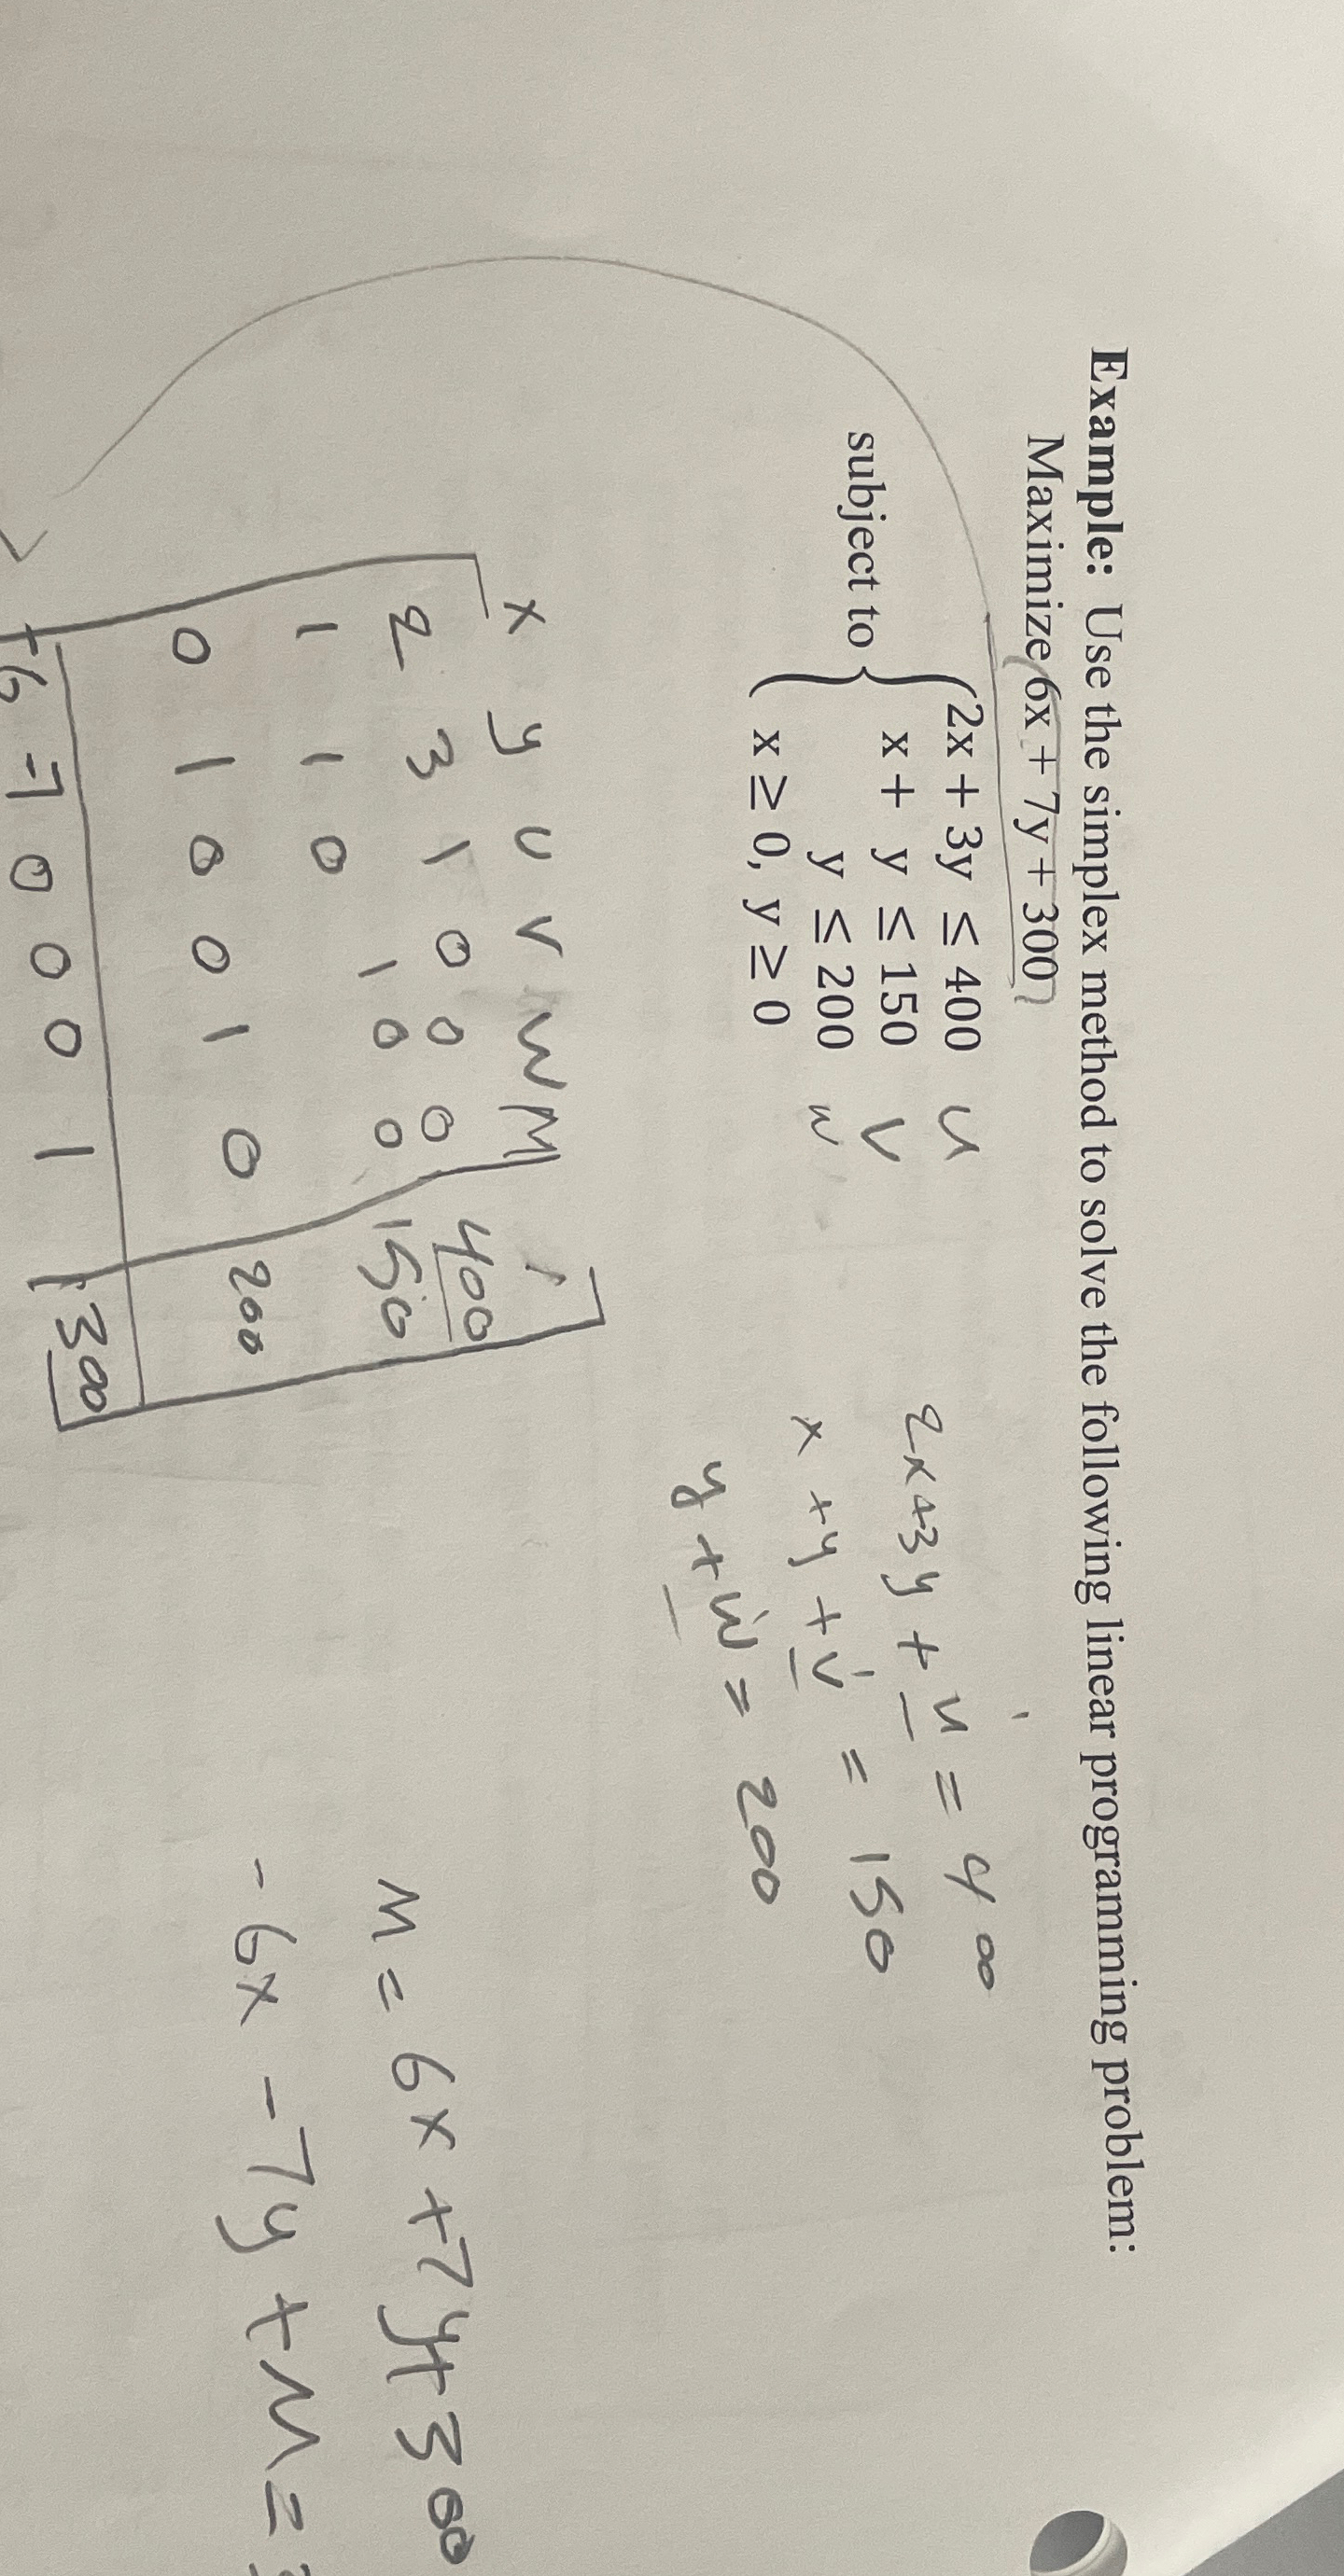 Example: Use the simplex method to solve the following linear programming problem:
Maximize 6x + 7y + 300
subject to { 2x + 3y ≤ 400 u
x + y ≤ 150 v
y ≤ 200 w
x ≥ 0, y ≥ 0
2x+3y + u = 400
x + y + v = 150
y + w = 200
x y u v w M
2 3 1 0 0 0 400
1 1 0 1 0 0 150
0 1 0 0 1 0 200
-6 -7 0 0 0 1 300
M = 6x + 7y + 300
-6x - 7y + M =